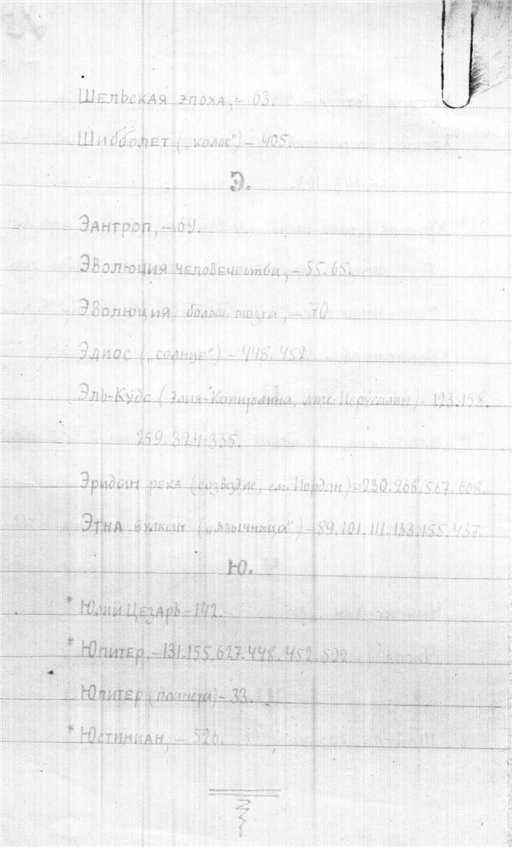 Шельская эпоха, – 63.
Шибболет („колос") – 405.
Э.
Эантроп, – 69.
Эволюция человечества, – 55.65.
Эволюция больш. мозга, – 70
Элиос („солнце") – 448.452
Эль-Кудс (Элия-Капитолина, Иерусалим) – 123.158.
259.324-335.
Эридан река (созвздие, см. Иордан) – 230.268.567.608.
Этна вулкан („язычница") – 89.101.111.133.155.437.
Ю.
* Юлий Цезарь – 142.
* Юпитер, – 131.155.627.448.452.522
Юпитер (планета) – 33.
* Юстиниан, – 526.